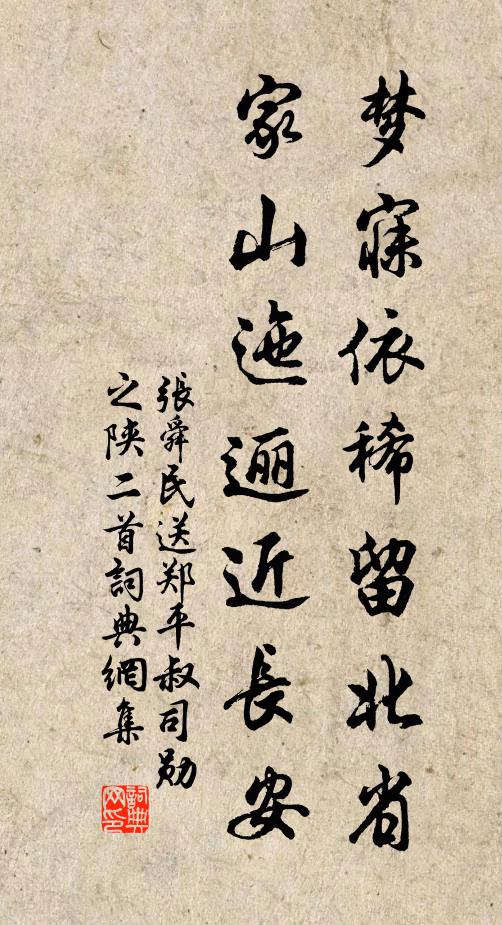 梦寐依稀留北省
家山迤逦近長安
張舜民送郑平叔司勋
之陕二首詞典網集
詞典
网印